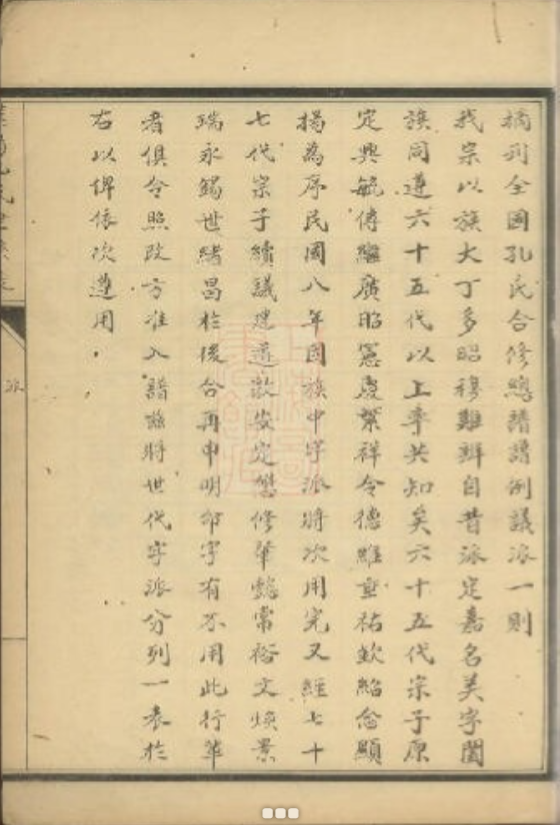 摘刋全國孔氏合修總譜譜例議派一則
我宗以族大丁多昭穆難辦自昔派定嘉名美字闔
族同遵六十五代以上率共知矣六十五代宗子原
定興毓傳繼廣昭憲慶繁祥令德維垂祐欽紹念顯
揚為序民國八年因族中字派將次用完又經七十
七代宗子續議建道敦安定懋修肇懿常裕文煥景
瑞永錫世緒昌於後合再申明卽字有不用此行輩
者俱令照改方准入譜茲將世代字派分列一表於
右以俾依次遵用
派